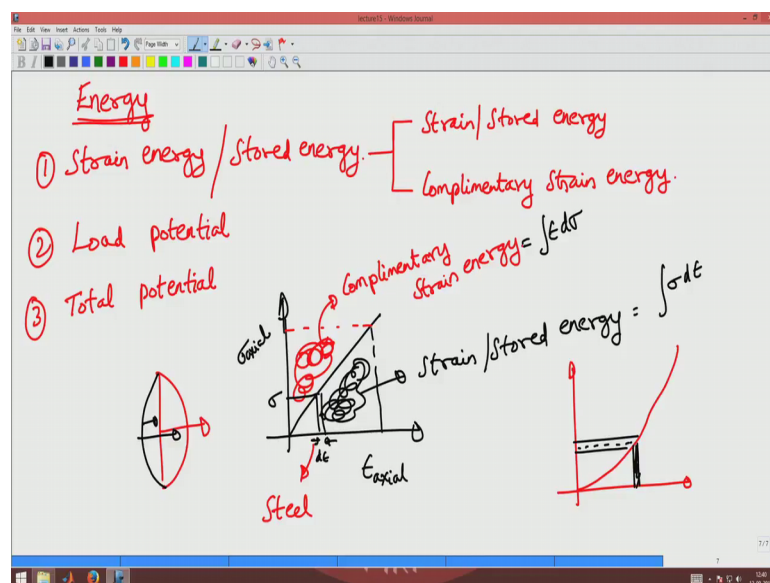 lecture15 - Windows Journal
File Edit View Insert Actions Tools Help
Page Width
B I
Energy
① Strain energy / Stored energy.
Strain/Stored energy
Complimentary Strain energy.
② Load potential
③ Total potential
Complimentary
Strain energy = ∫εdσ
Strain/Stored energy = ∫σdε
σaxial
σ
dε
εaxial
Steel
7/7
7
12:40